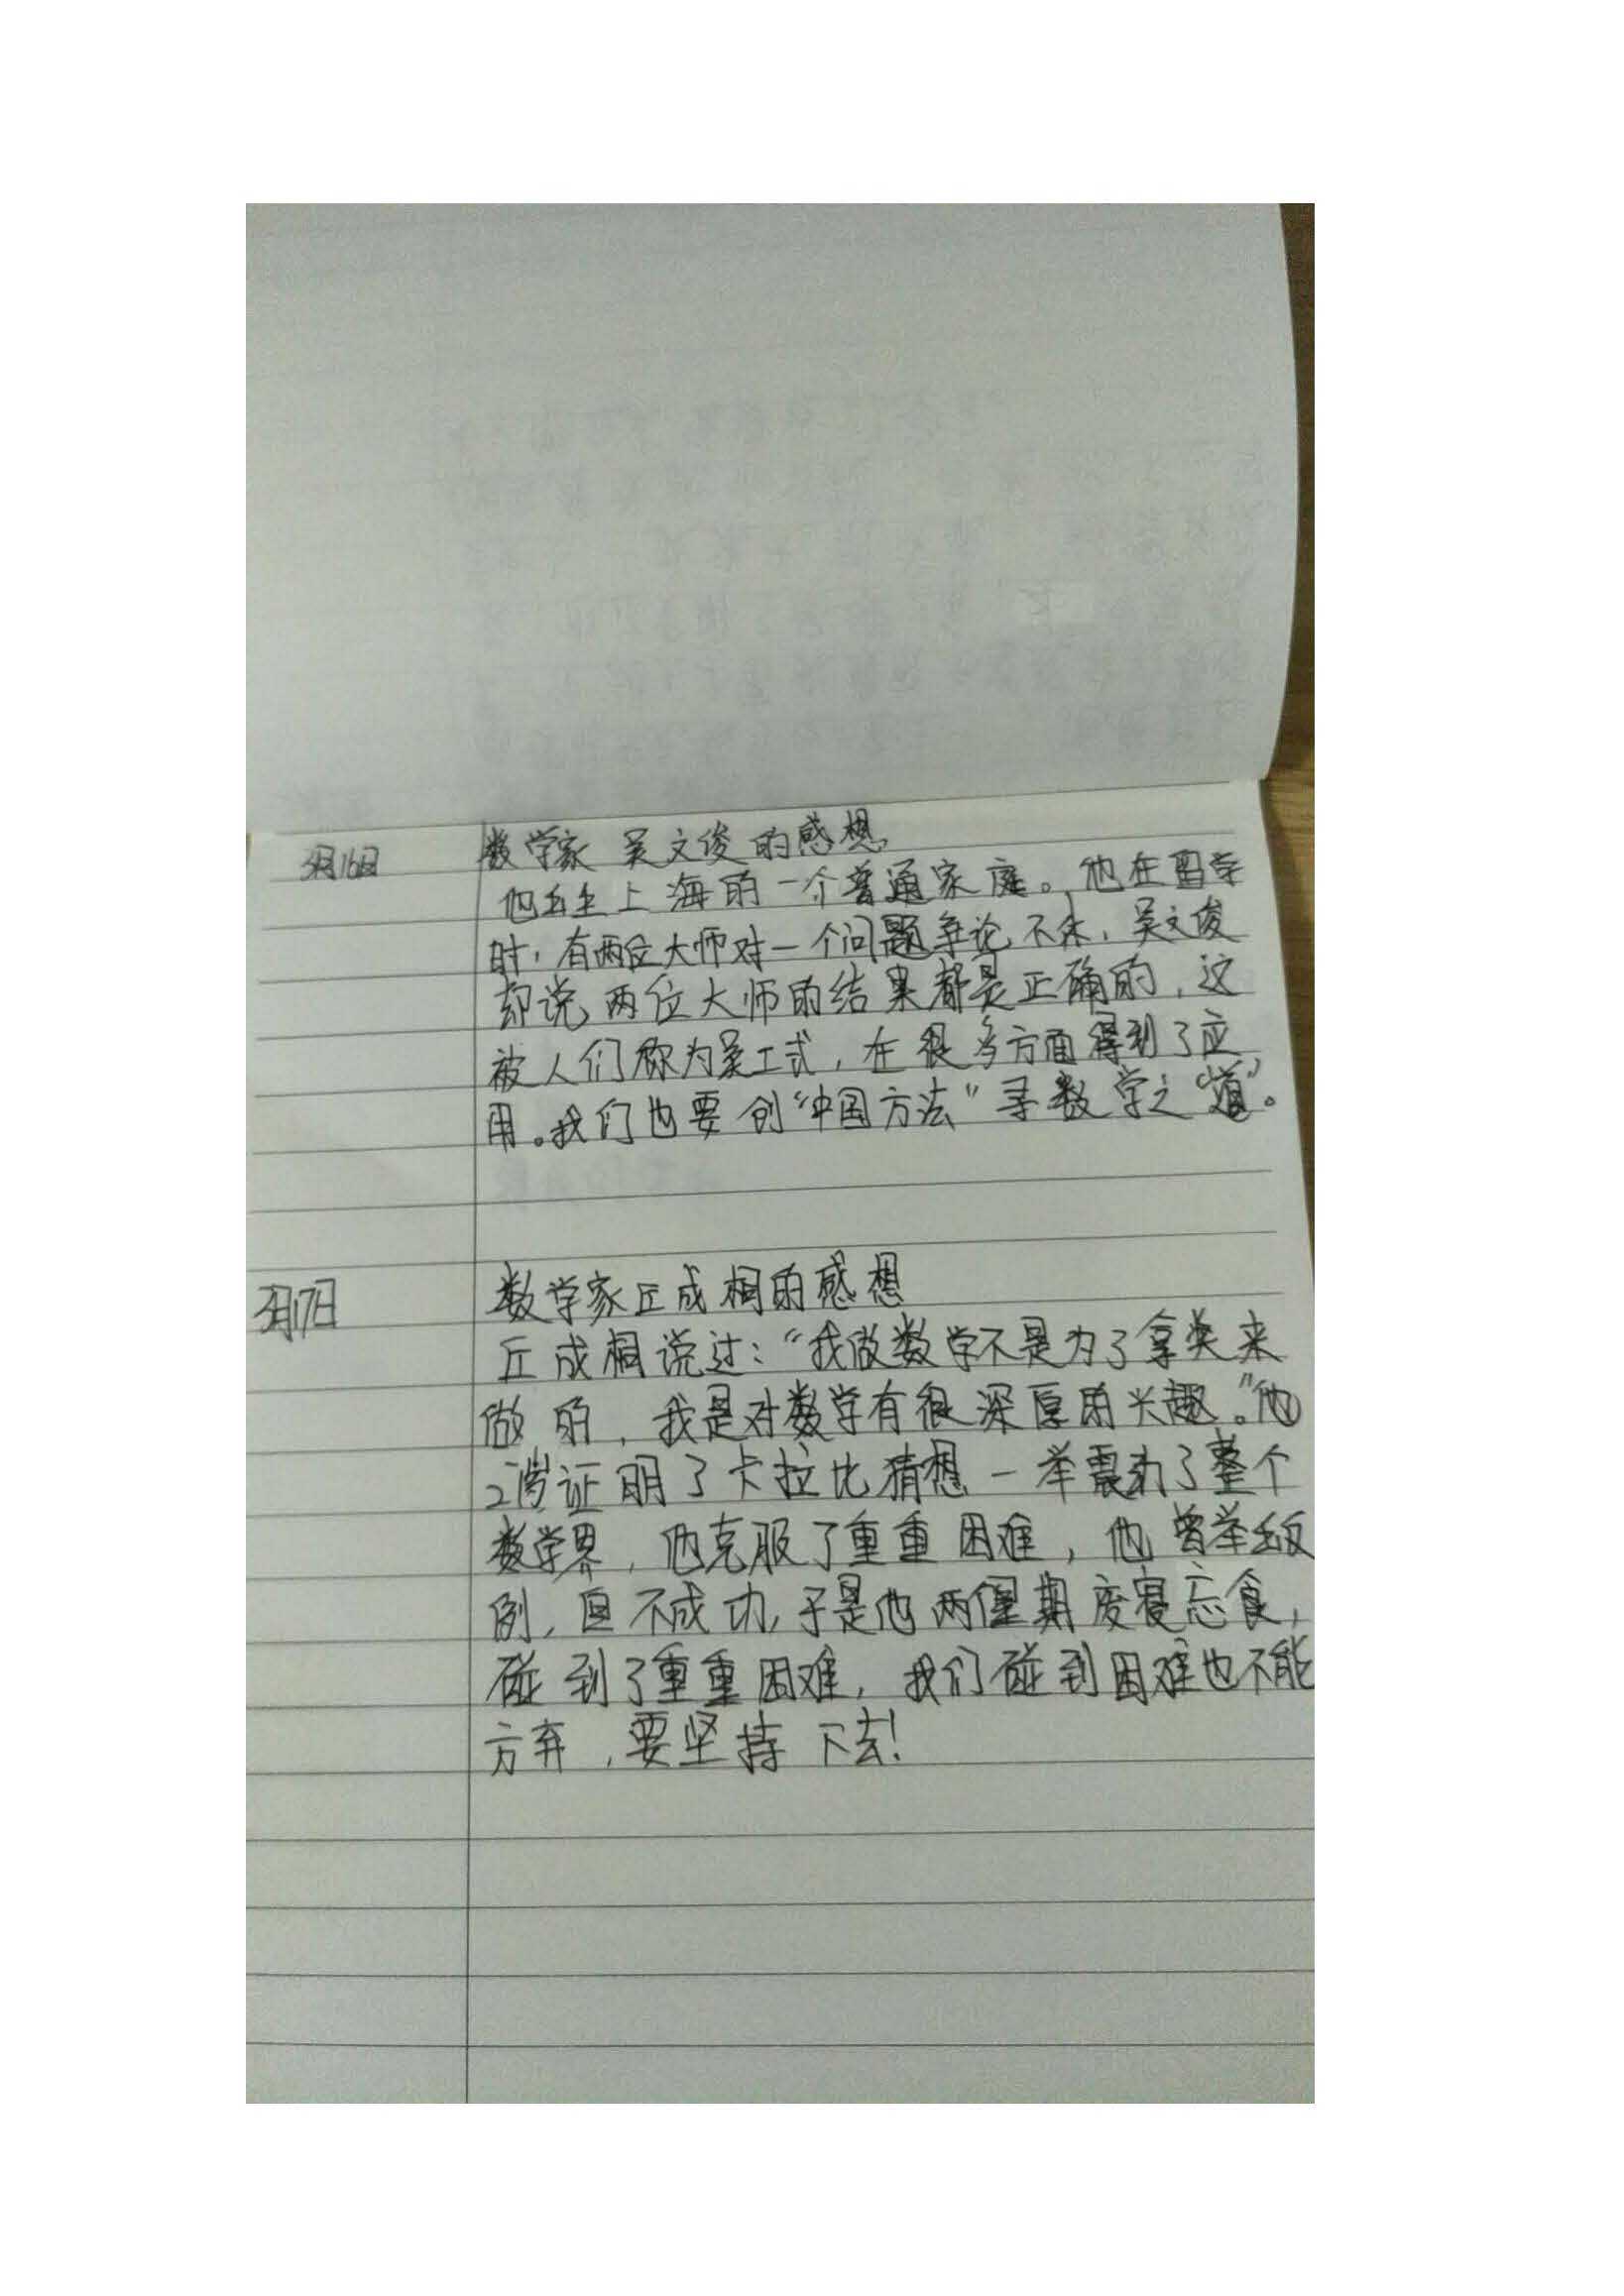 3月16日
数学家 吴文俊的感想
他出生上海的一个普通家庭。他在留学
时,有两位大师对一个问题争论不休,吴文俊
却说两位大师的结果都是正确的,这
被人们称为吴工式,在很多方面得到了应
用。我们也要创“中国方法”寻数学之“道”。
3月17日
数学家丘成桐的感想
丘成桐说过:“我做数学不是为了拿奖来
做的,我是对数学有很深厚的兴趣。”他
证明了卡拉比猜想一举震动了整个
数学界,他克服了重重困难,他曾举出反
例,但不成功,于是他两星期废寝忘食,
碰到了重重困难,我们碰到困难也不能
方弃,要坚持下去!